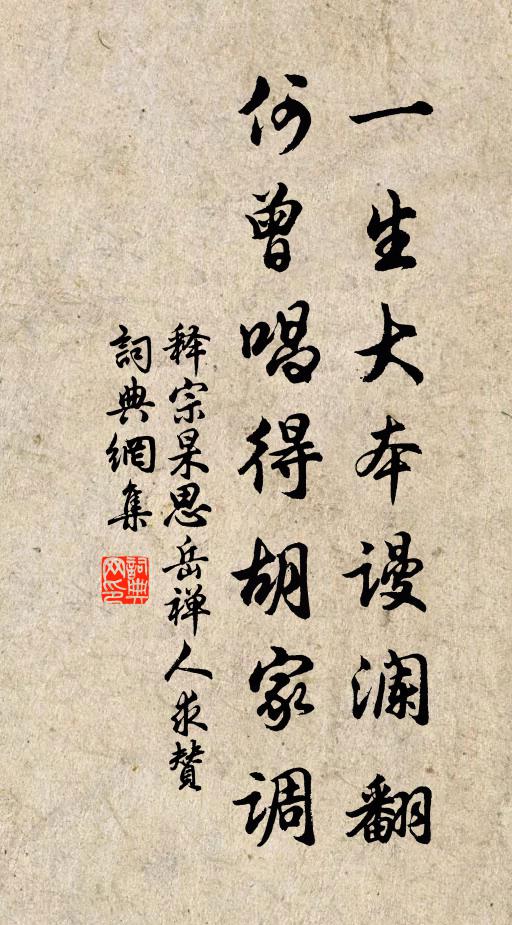 一生大本谩澜翻
何曾唱得胡家调
释宗杲思岳禅人求赞
詞典網集
詞典网印